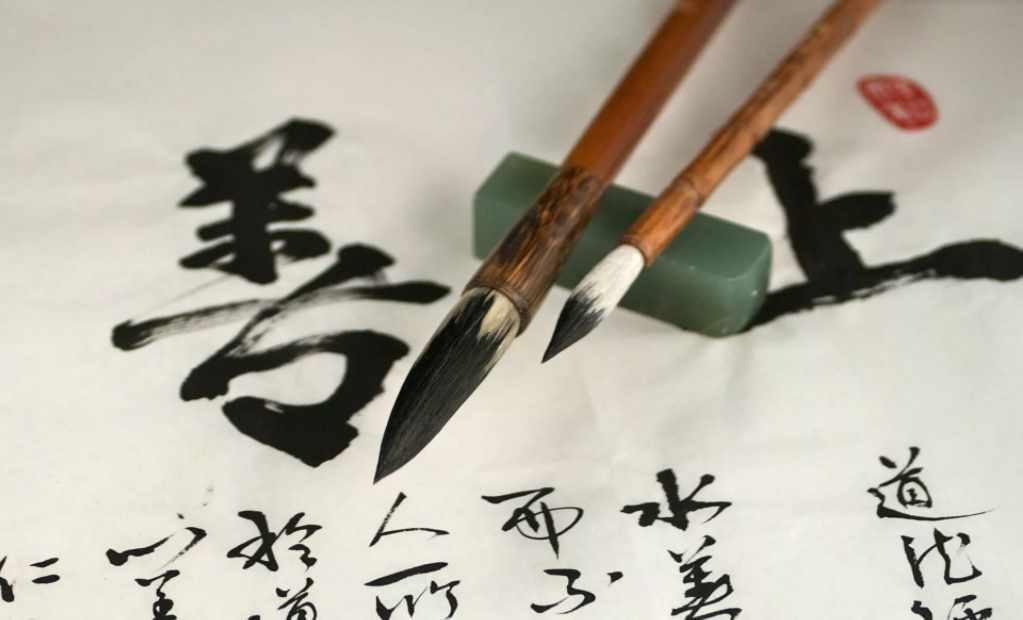 上善
道
水善
而不
人所
於道
心善
仁